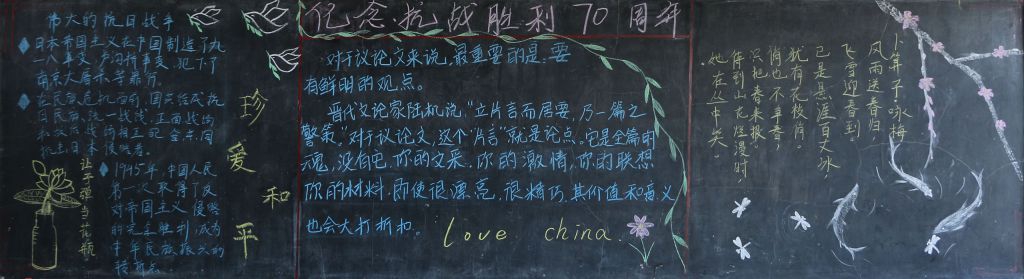 伟大的抗日战争
日本帝国主义在中国制造了九
一八事变、卢沟桥事变，犯下了
南京大屠杀等罪行
在民族危机面前，国共结成抗
日民族统一战线，正面战场
和敌后战场相互配合，共同
抗击日本侵略者。
1945年，中国人民
第一次取得了反
对帝国主义侵略
的完全胜利，成为
中华民族振兴的
转折点
让子弹当花瓶
珍爱和平
纪念抗战胜利70周年
对于议论文来说，最重要的是，要
有鲜明的观点。
晋代文论家陆机说，“立片言而居要，乃一篇之
警策。”对于议论文，这个“片言”就是论点。它是全篇的
魂，没有它，你的文采，你的激情，你的联想
你的材料，即使很漂亮，很精巧，其价值和意义
也会大打折扣。
love china.
卜算子·咏梅
风雨送春归，
飞雪迎春到
已是悬崖百丈冰
犹有花枝俏。
俏也不争春，
只把春来报。
待到山花烂漫时，
她在丛中笑。